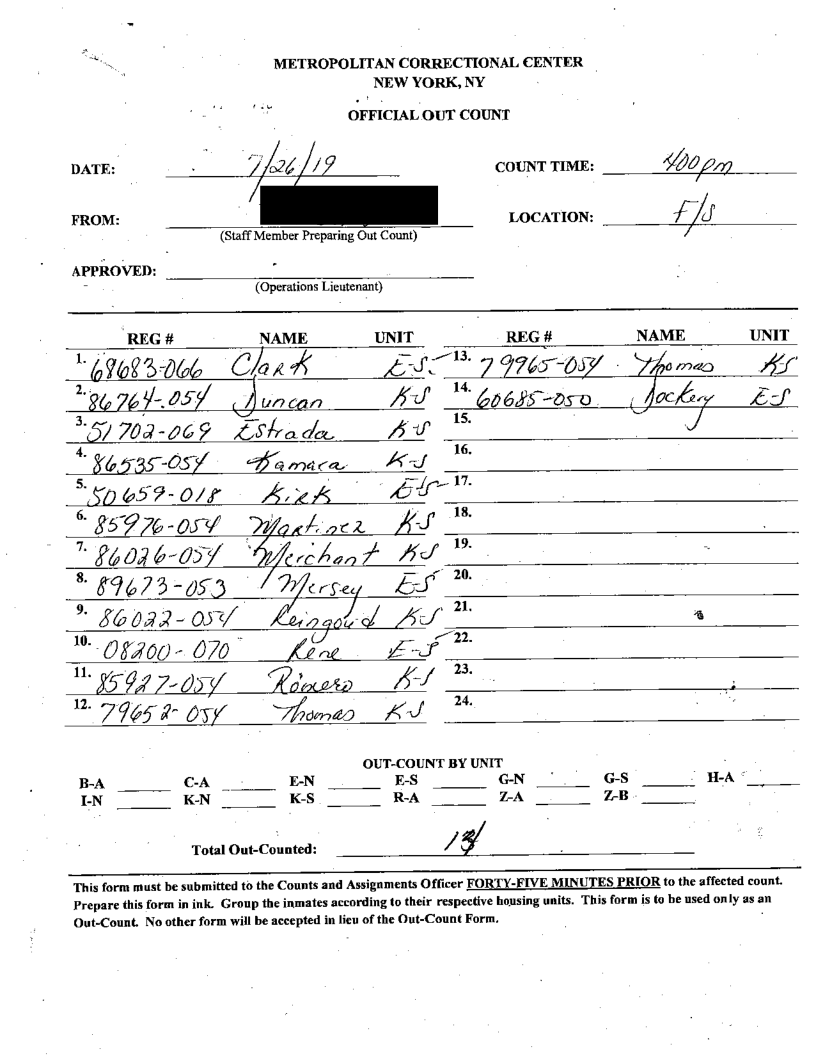 METROPOLITAN CORRECTIONAL CENTER
NEW YORK, NY
OFFICIAL OUT COUNT
DATE: 7/26/19 COUNT TIME: 400 pm
FROM: LOCATION: F/S
(Staff Member Preparing Out Count)
APPROVED:
(Operations Lieutenant)
REG # NAME UNIT REG # NAME UNIT
1. 68683-066 Clark E-S. 13. 79965-054 Thomas KS
2. 86764-054 Duncan K-S 14. 60685-050 Dockery E-S
3. 51702-069 Estrada K-S 15.
4. 86535-054 Kamara K-S 16.
5. 50659-018 Kirk E-S 17.
6. 85976-054 Martinez K-S 18.
7. 86026-054 Merchant K-S 19.
8. 89673-053 Mersey E-S 20.
9. 86022-054 K-S 21.
10. 08200-070 Rene E-S 22.
11. 85927-054 Romero K-S 23.
12. 79652-054 Thomas K-S 24.
OUT-COUNT BY UNIT
B-A C-A E-N E-S G-N G-S H-A
I-N K-N K-S R-A Z-A Z-B
Total Out-Counted:
This form must be submitted to the Counts and Assignments Officer FORTY-FIVE MINUTES PRIOR to the affected count.
Prepare this form in ink. Group the inmates according to their respective housing units. This form is to be used only as an
Out-Count. No other form will be accepted in lieu of the Out-Count Form.